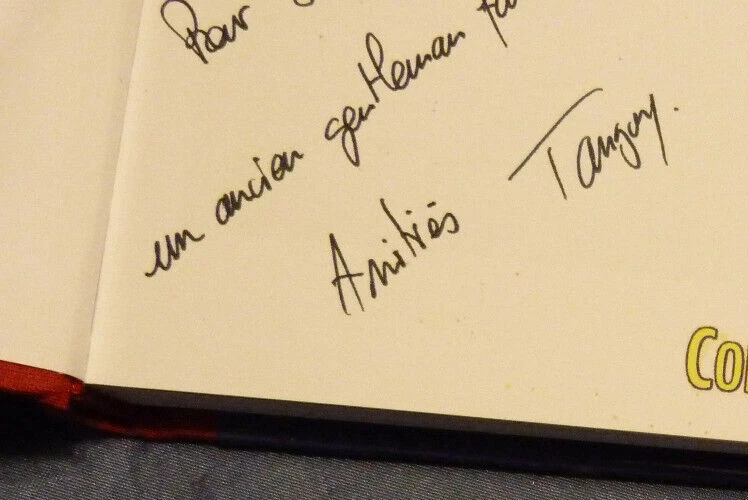 un ancien gentleman
Amitiés Tanguy.